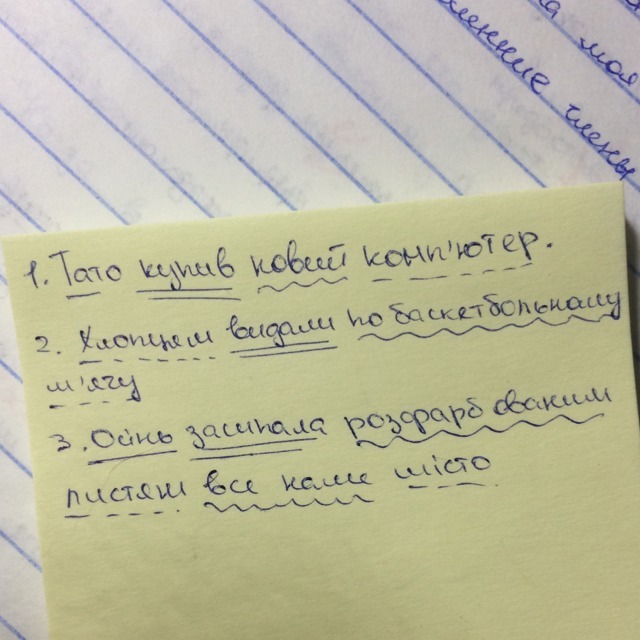 на мол
менние члены
1. Тато купив новий комп'ютер.
2. Хлопцям видали по баскетбольному
м'ячу
3. Осінь засипала розфарбованим
листям все наше місто